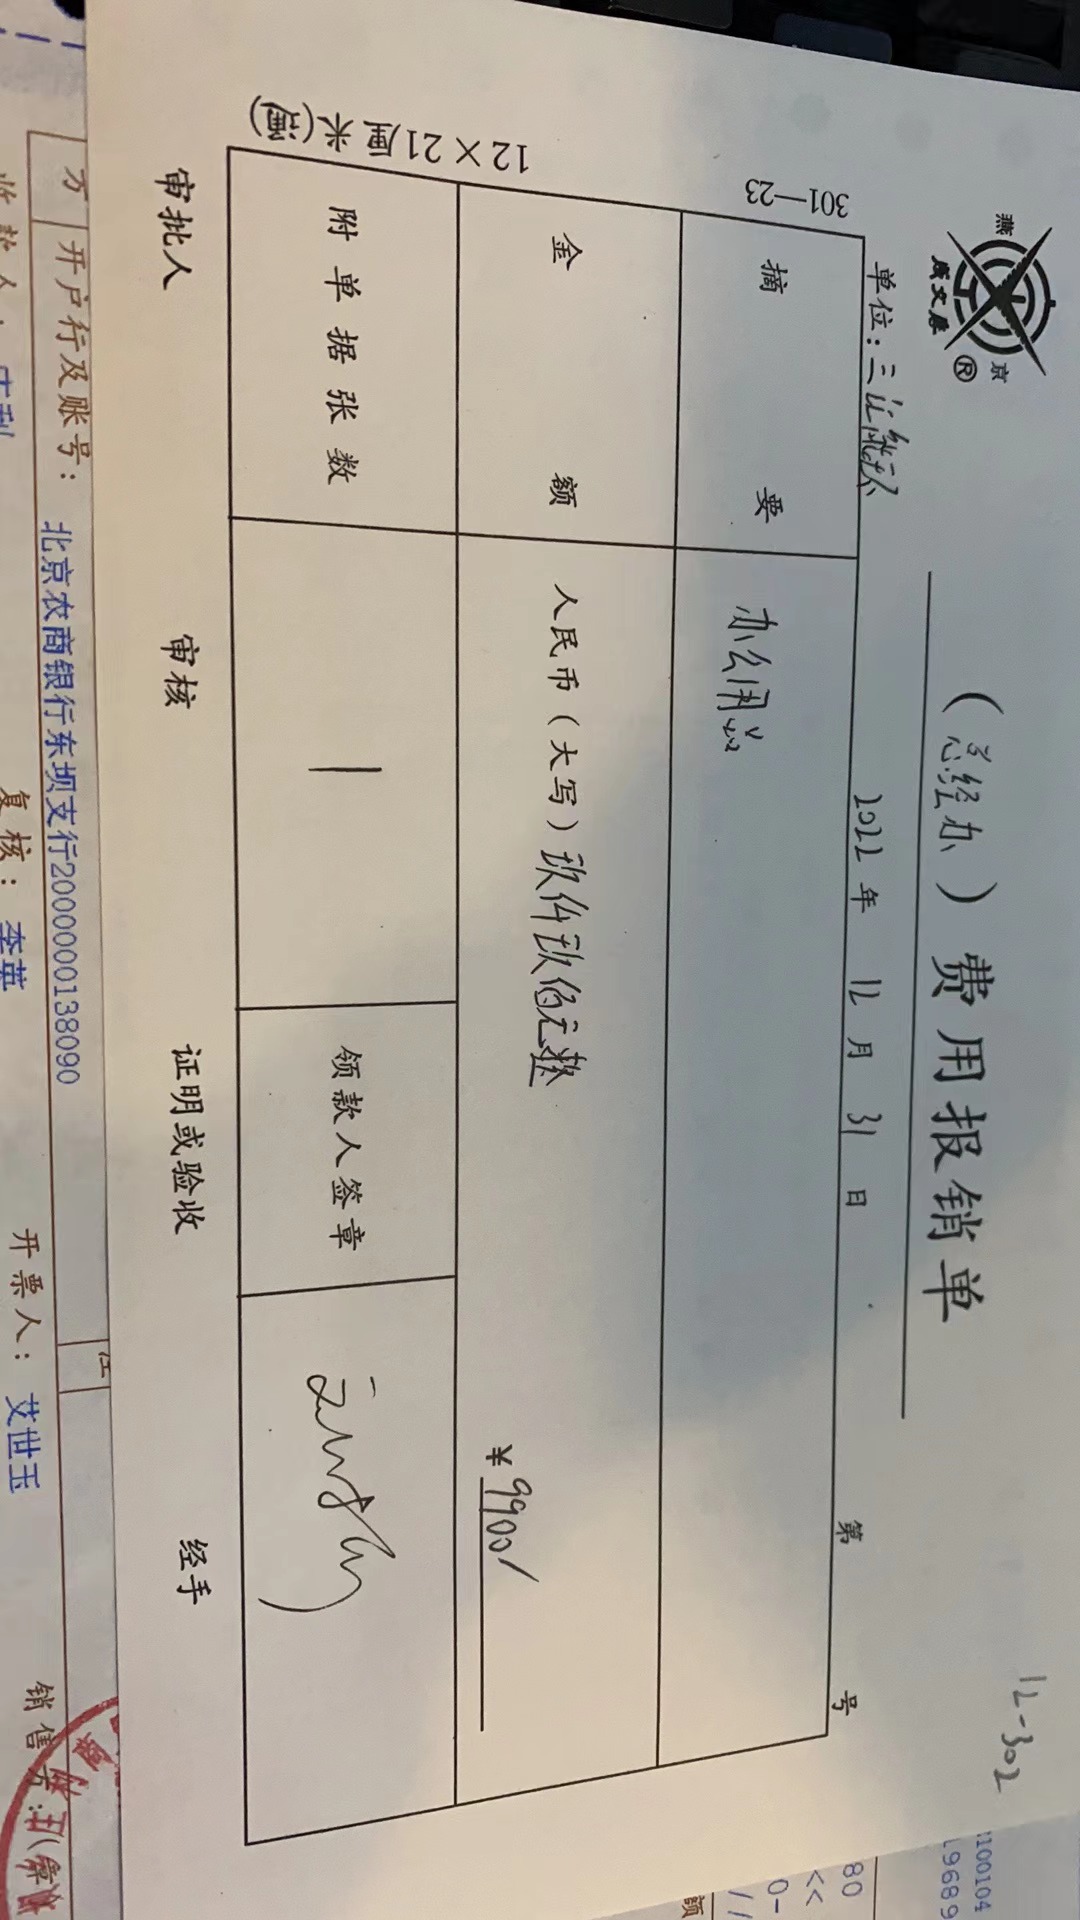 12-302
燕京
威文康®
（总经办）费用报销单
301—23
单位：三
2022年12月31日
第 号
摘要 办公用品
金额 人民币（大写）玖仟玖佰元整
¥9900/
附单据张数 1 领款人签章
审批人 审核 证明或验收 经手
12×21厘米(通)
方 开户行及账号： 北京农商银行东坝支行2000000138090
收款人： 复核：李英 开票人：艾世玉 销售方：
1100104
19689
80
<<
0-
//
额